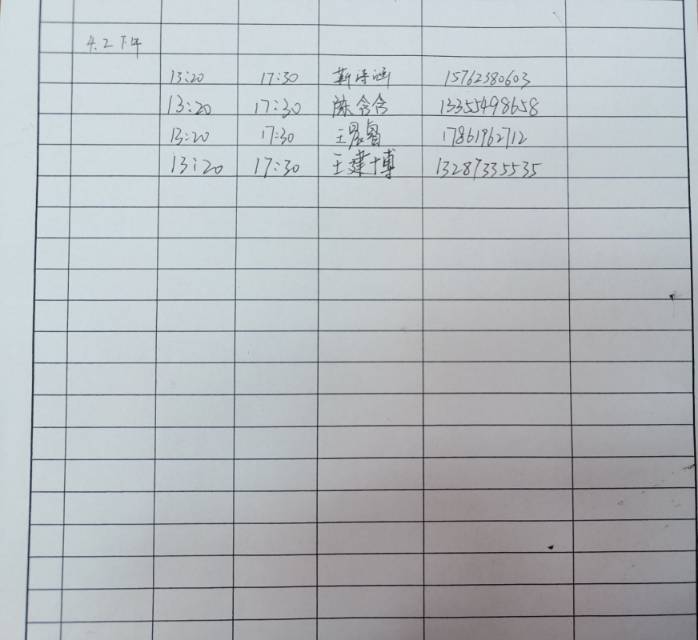 4.2下午
13:20 17:30 靳诗涵 15762580603
13:20 17:30 陈含含 13355498658
13:20 17:30 王晨鲁 17861962712
13:20 17:30 王建博 13287335535